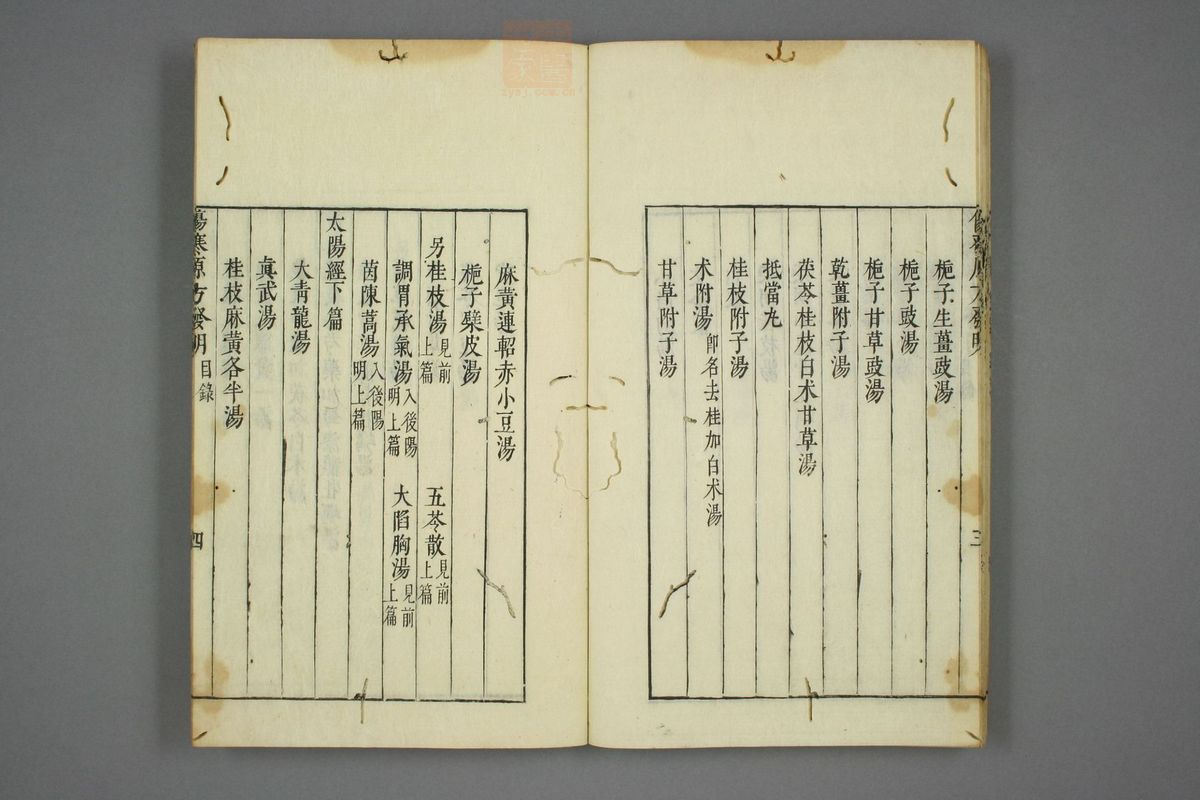 梔子生薑豉湯
梔子豉湯
梔子甘草豉湯
乾薑附子湯
茯苓桂枝白朮甘草湯
抵當丸
桂枝附子湯
朮附湯 卽名去桂加白朮湯
甘草附子湯
三
麻黃連軺赤小豆湯
梔子櫱皮湯
另桂枝湯 見前上篇 五苓散 見前上篇
調胃承氣湯 入後陽明上篇 大陷胸湯 見前上篇
茵陳蒿湯 入後陽明上篇
太陽經下篇
大青龍湯
眞武湯
桂枝麻黃各半湯
傷寒原方發明 目錄 四